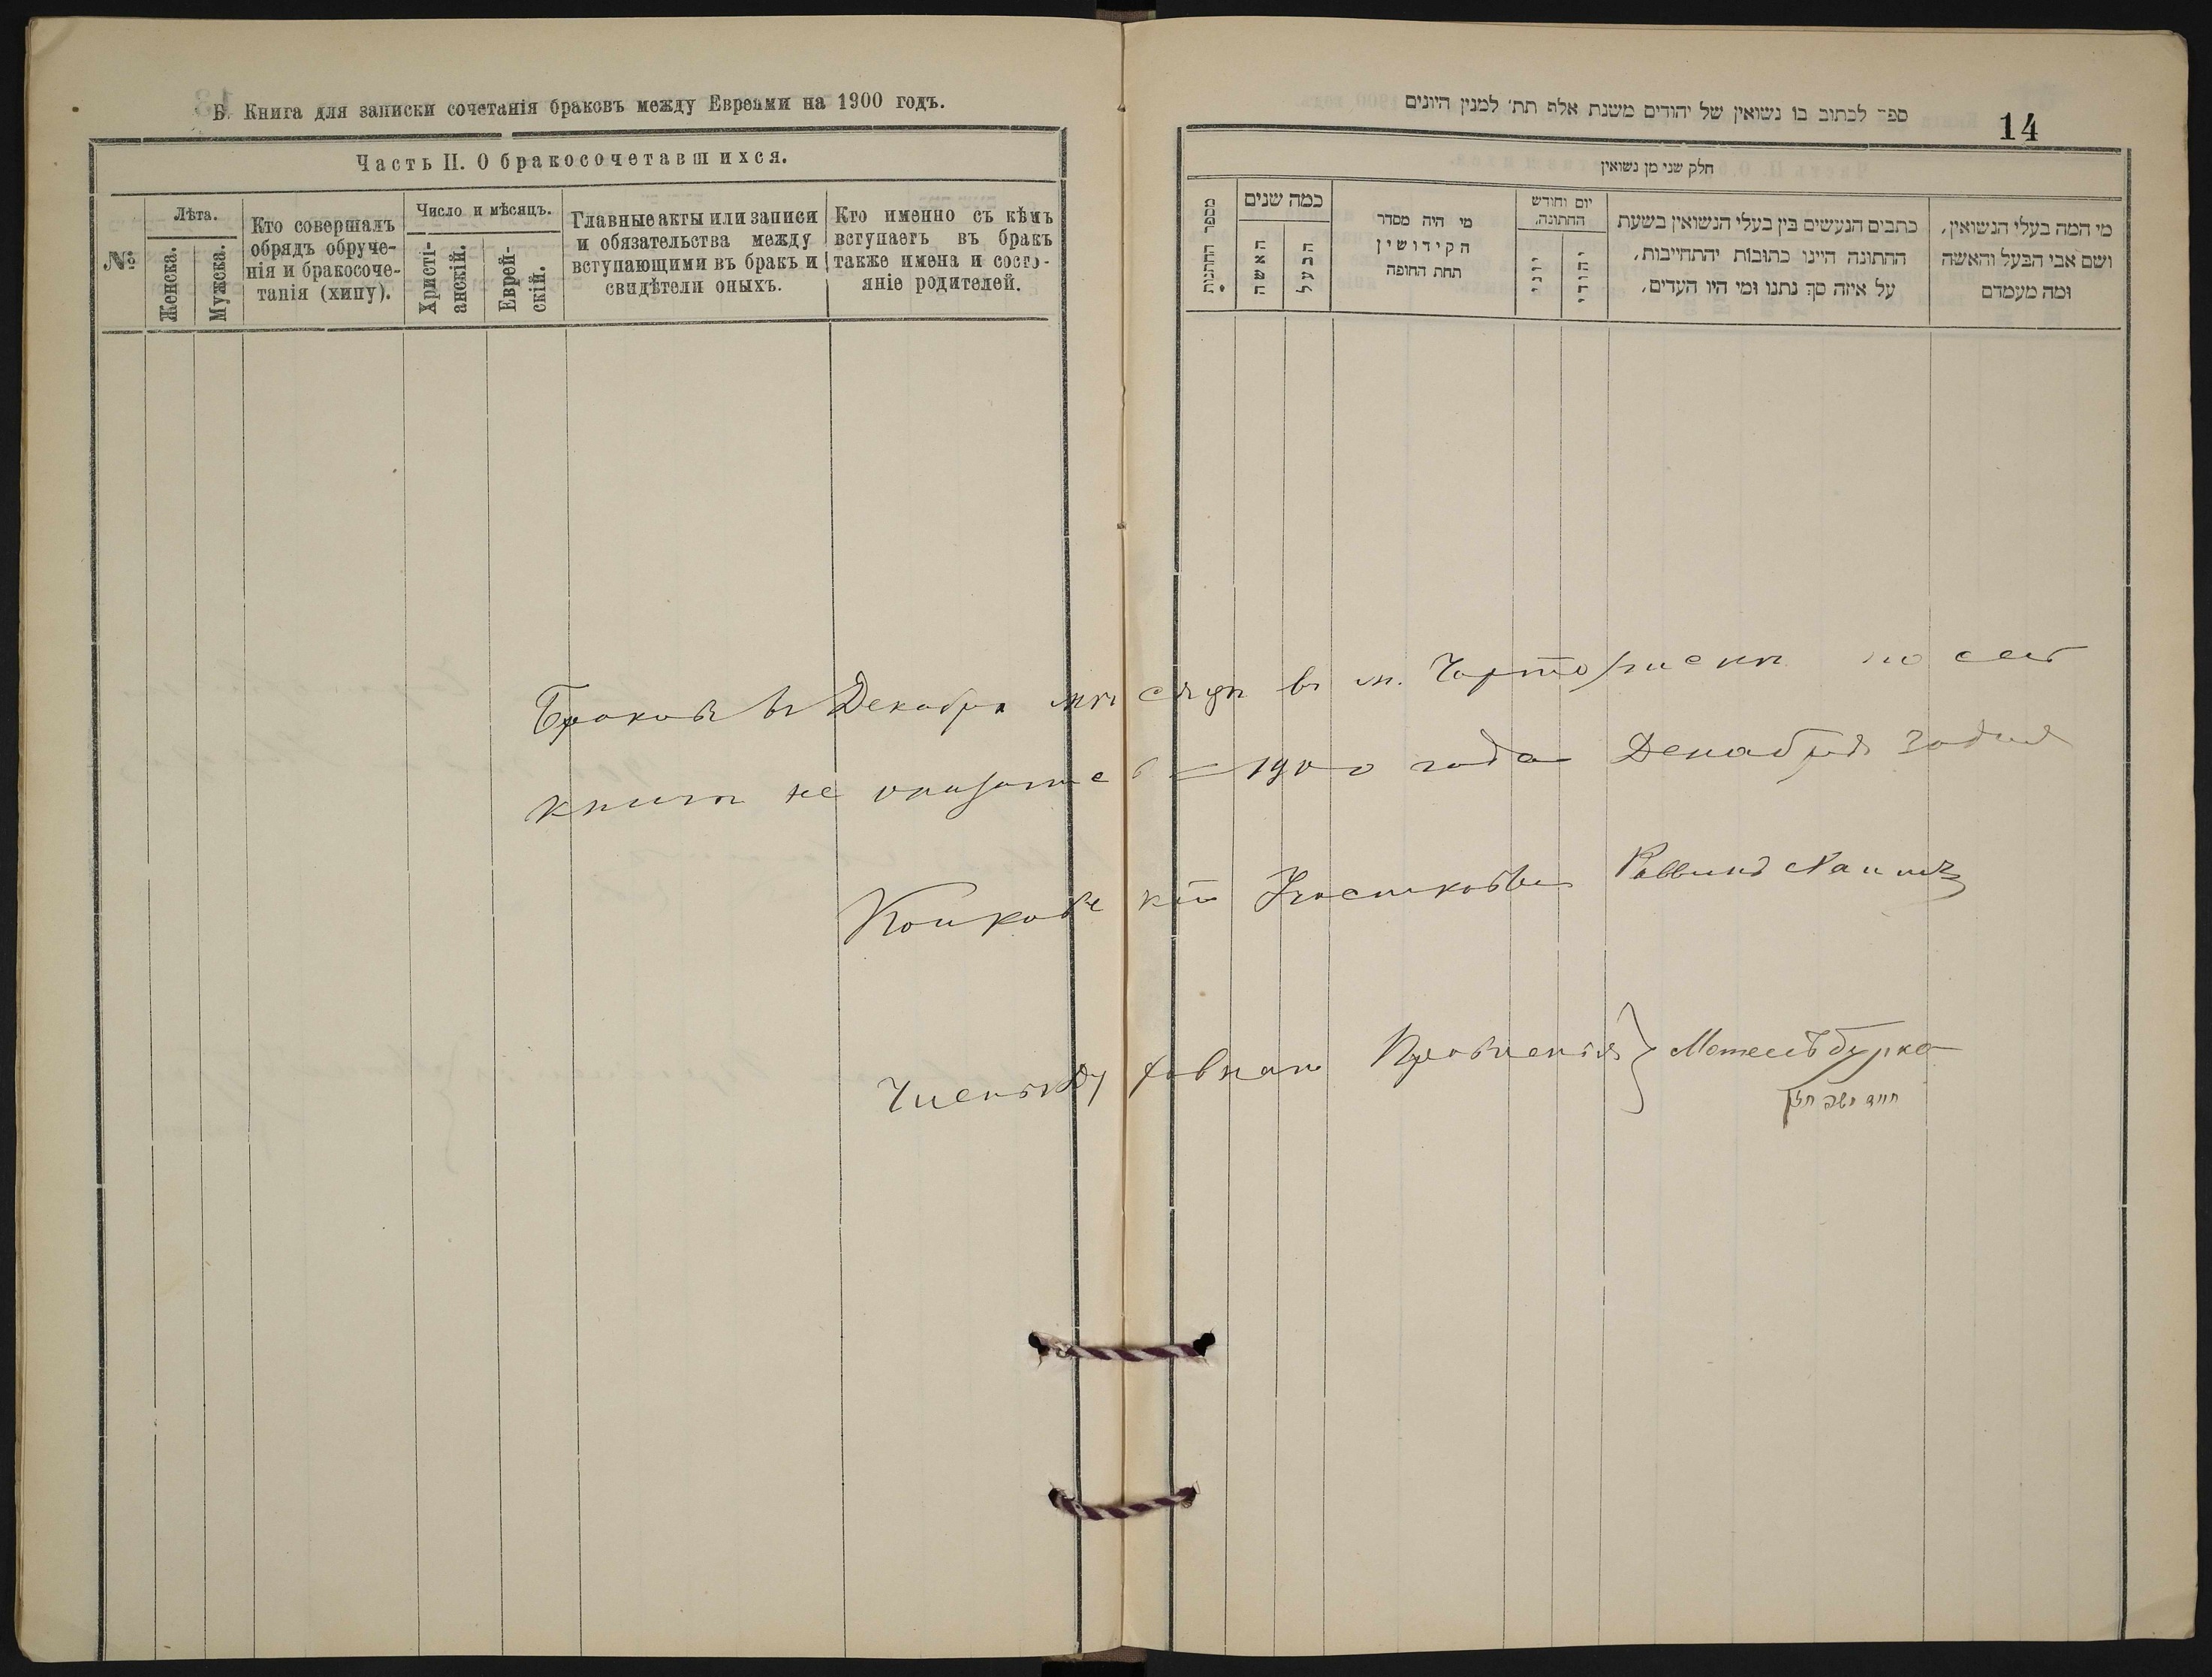 Б. Книга для записки сочетанія браковъ между Евреями на 1900 годъ.
Часть II. О бракосочетавшихся.
№
Лѣта.
Женска.
Мужска.
Кто совершалъ
обрядъ обруче-
нія и бракосоче-
танія (хипу).
Число и мѣсяцъ.
Христі-
анскій.
Еврей-
скій.
Главные акты или записи
и обязательства между
вступающими въ бракъ и
свидѣтели оныхъ.
Кто именно съ кѣмъ
вступаетъ въ бракъ
также имена и состо-
яніе родителей.
ספר לכתוב בו נשואין של יהודים משנת אלף תת׳ למנין היונים
14
חלק שני מן נשואין
מי המה בעלי הנשואין,
ושם אבי הבעל והאשה
ומה מעמדם
כתבים הנעשים בין בעלי הנשואין בשעת
החתונה היינו כתובות יהתחייבות,
על איזה סך נתנו ומי היו העדים,
יום וחודש
החתונה,
יהודי
יוני
מי היה מסדר
הקידושין
תחת החופה
כמה שנים
הבעל
האשה
מספר החתונות
Браковъ въ Декабрѣ мѣсяцѣ въ м. Чарторискѣ по сей
книгѣ не оказалось 1900 года Декабря 30 дня
Раввинъ
Членъ Духовнаго Правленія } Мотель Бурко